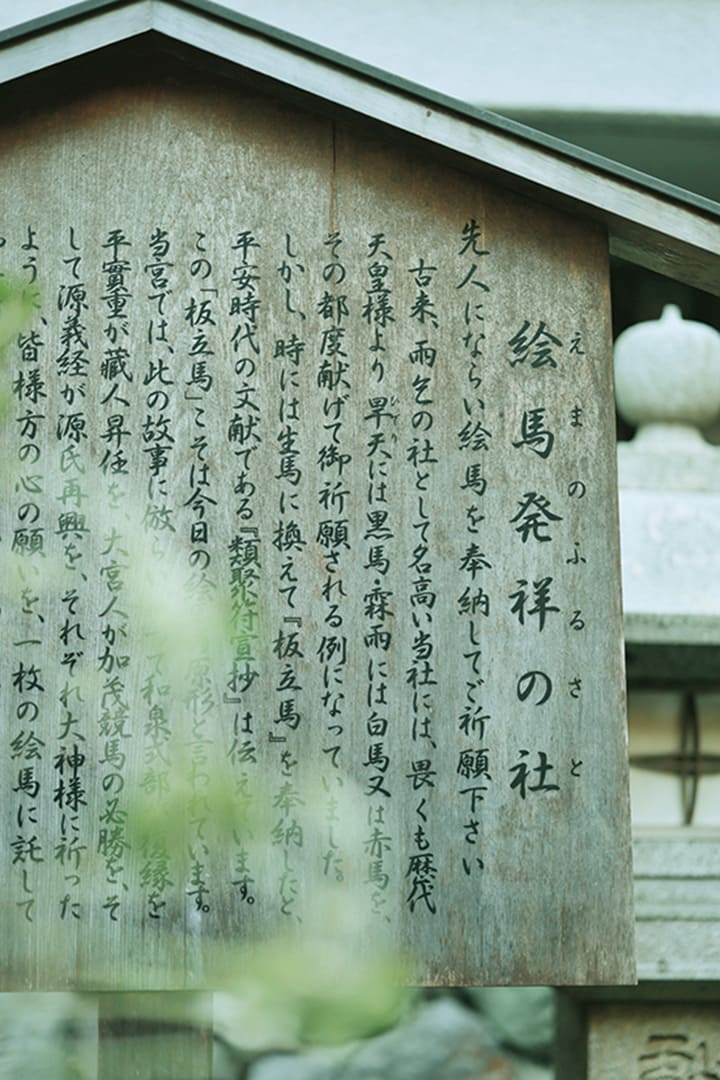 えまのふるさと
絵馬発祥の社
先人にならい絵馬を奉納してご祈願下さい
古来、雨乞の社として名高い当社には、畏くも歴代
天皇様より旱天には黒馬・霖雨には白馬又は赤馬を、
その都度献げて御祈願される例になっていました。
しかし、時には生馬に換えて『板立馬』を奉納したと、
平安時代の文献である『類聚符宣抄』は伝えています。
この「板立馬」こそは今日の絵 原形と言われています。
当宮では、此の故事に倣ら て和泉式部 復縁を
平實重が蔵人昇任を、大宮人が加茂競馬の必勝を、そ
して源義経が源氏再興を、それぞれ大神様に祈った
ように、皆様方の心の願いを、一枚の絵馬に託して